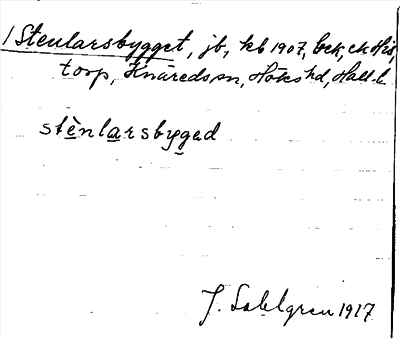 1 Stenlarsbygget, jb, kb 1907, bek, ek His,
torp, Knäreds sn, Höks hd, Hall. l.
stènlarsbyged
J. Sahlgren 1917